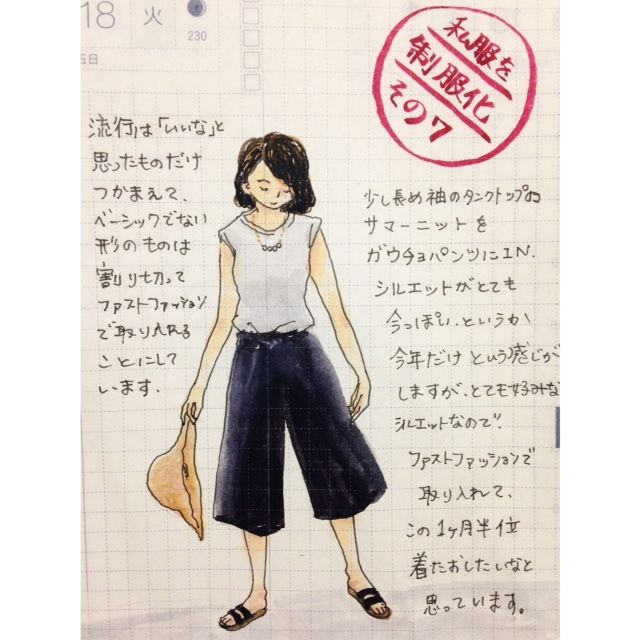 18 火
230
五日
私服を
制服化
その7
流行は「いいな」と
思ったものだけ
つかまえて、
ベーシックでない
形のものは
割り切って
ファストファッション
で取り入れる
ことにして
います。
少し長め袖のタンクトップ型
サマーニットを
ガウチョパンツにIN.
シルエットがとても
今っぽい、というか
今年だけという感じが
しますが、とても好みな
シルエットなので!
ファストファッションで
取り入れて、
この1ヶ月半位
着たおしたいなと
思っています。